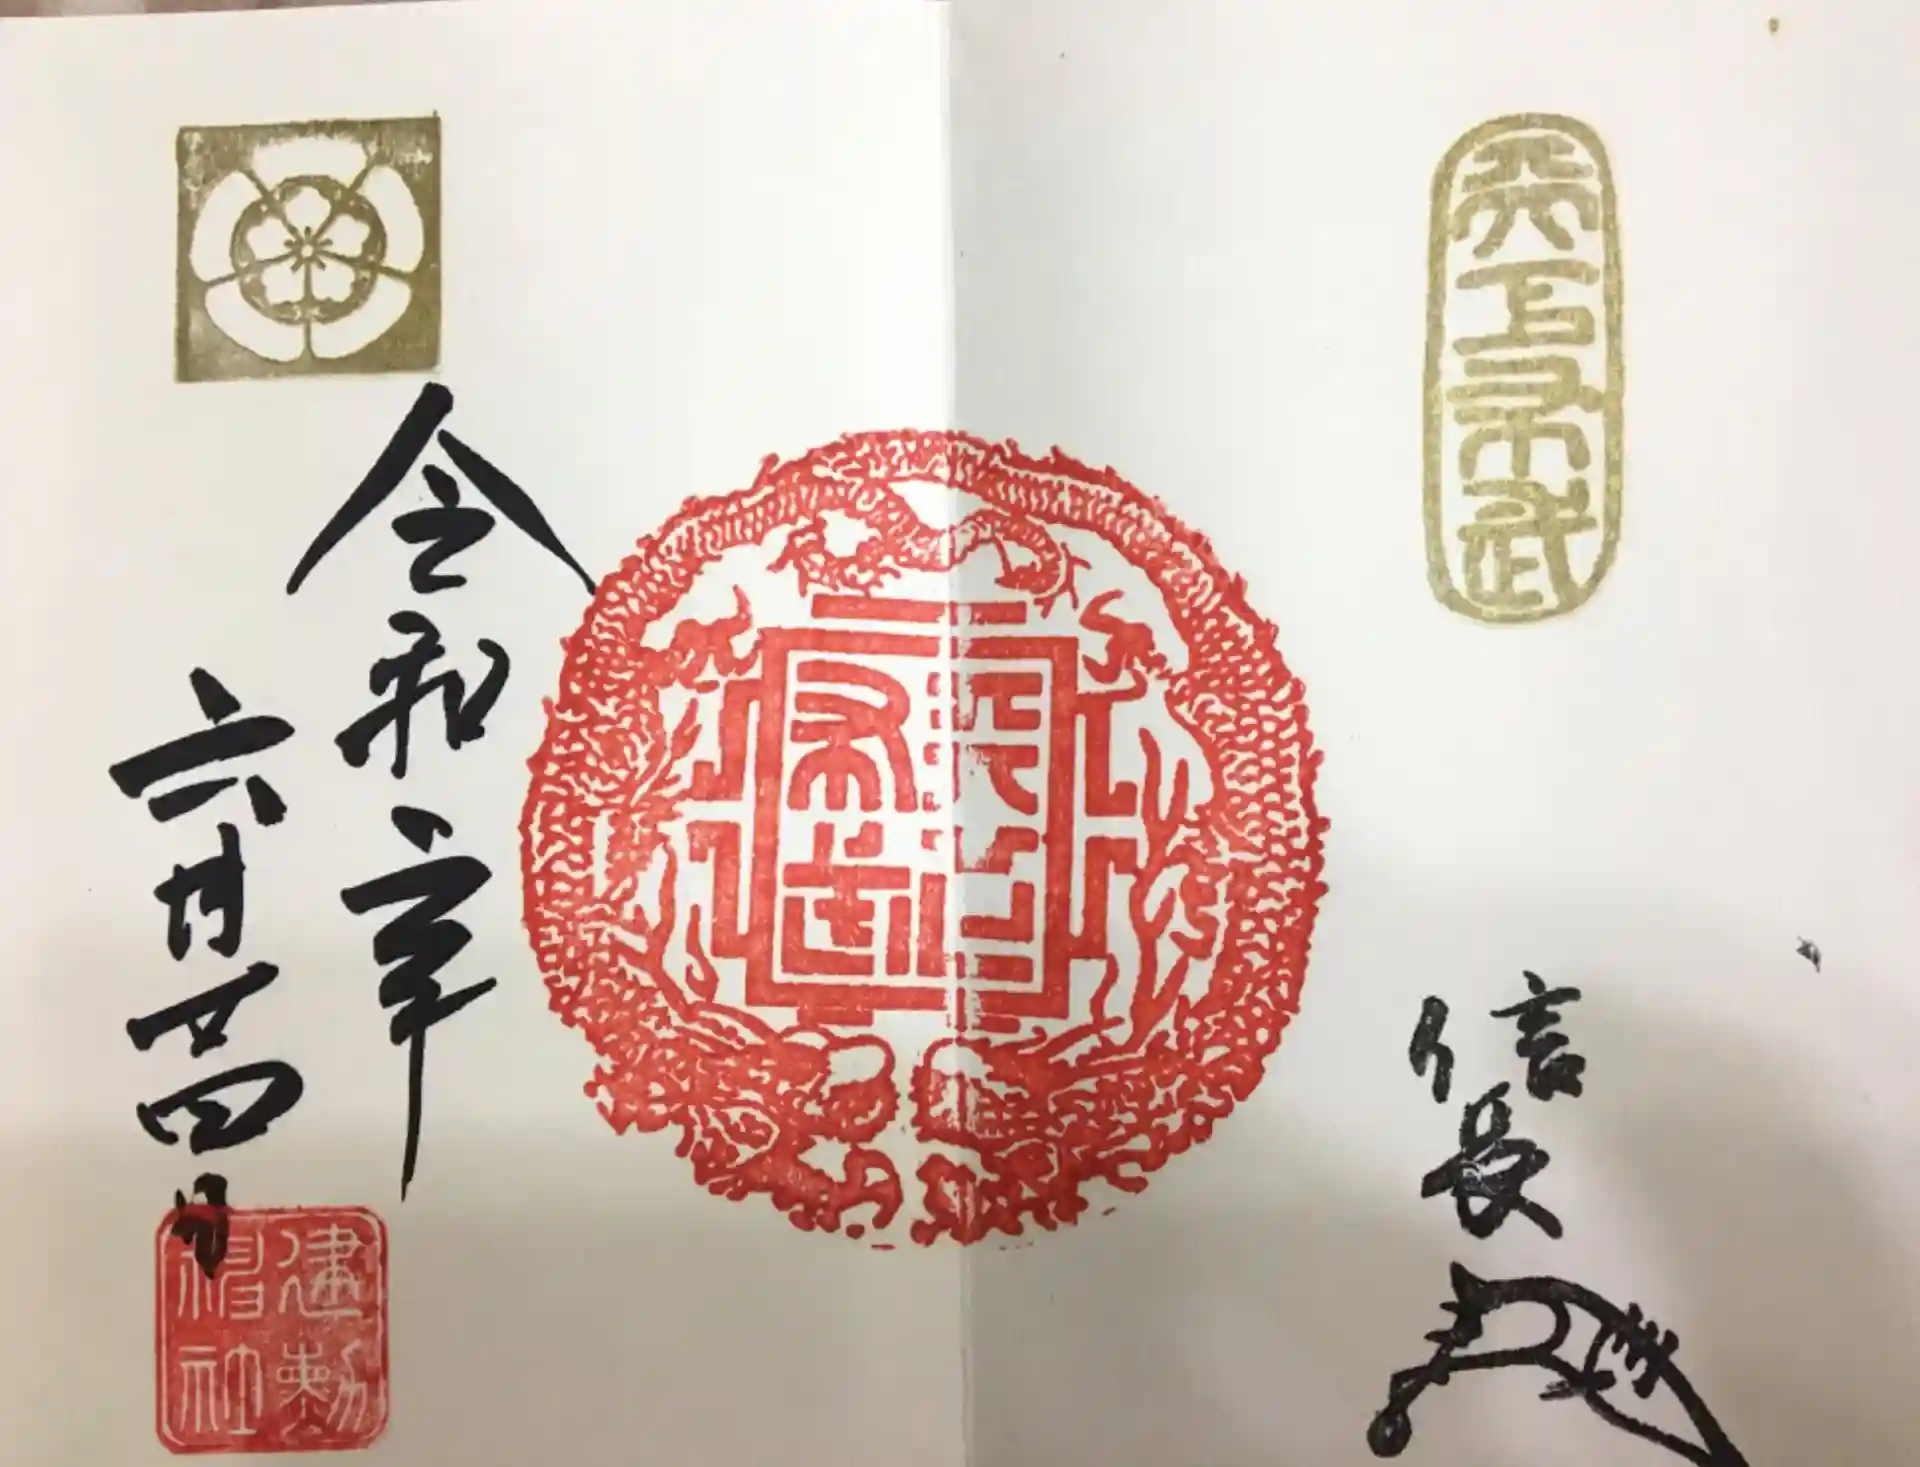 天下布武
信長
天下布武
令和年
六月廿四日
建勲神社